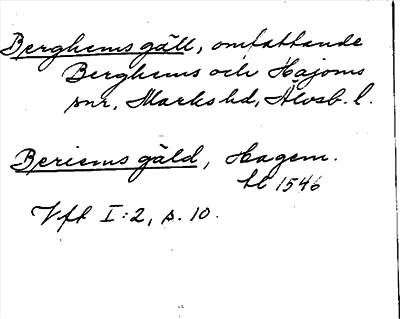 Berghems gäll, omfattande
Berghems och Hajoms
snr, Marks hd, Älvsb. l.
Beriems gäld, Hagem.
hl 1546
Vft I:2, s. 10.